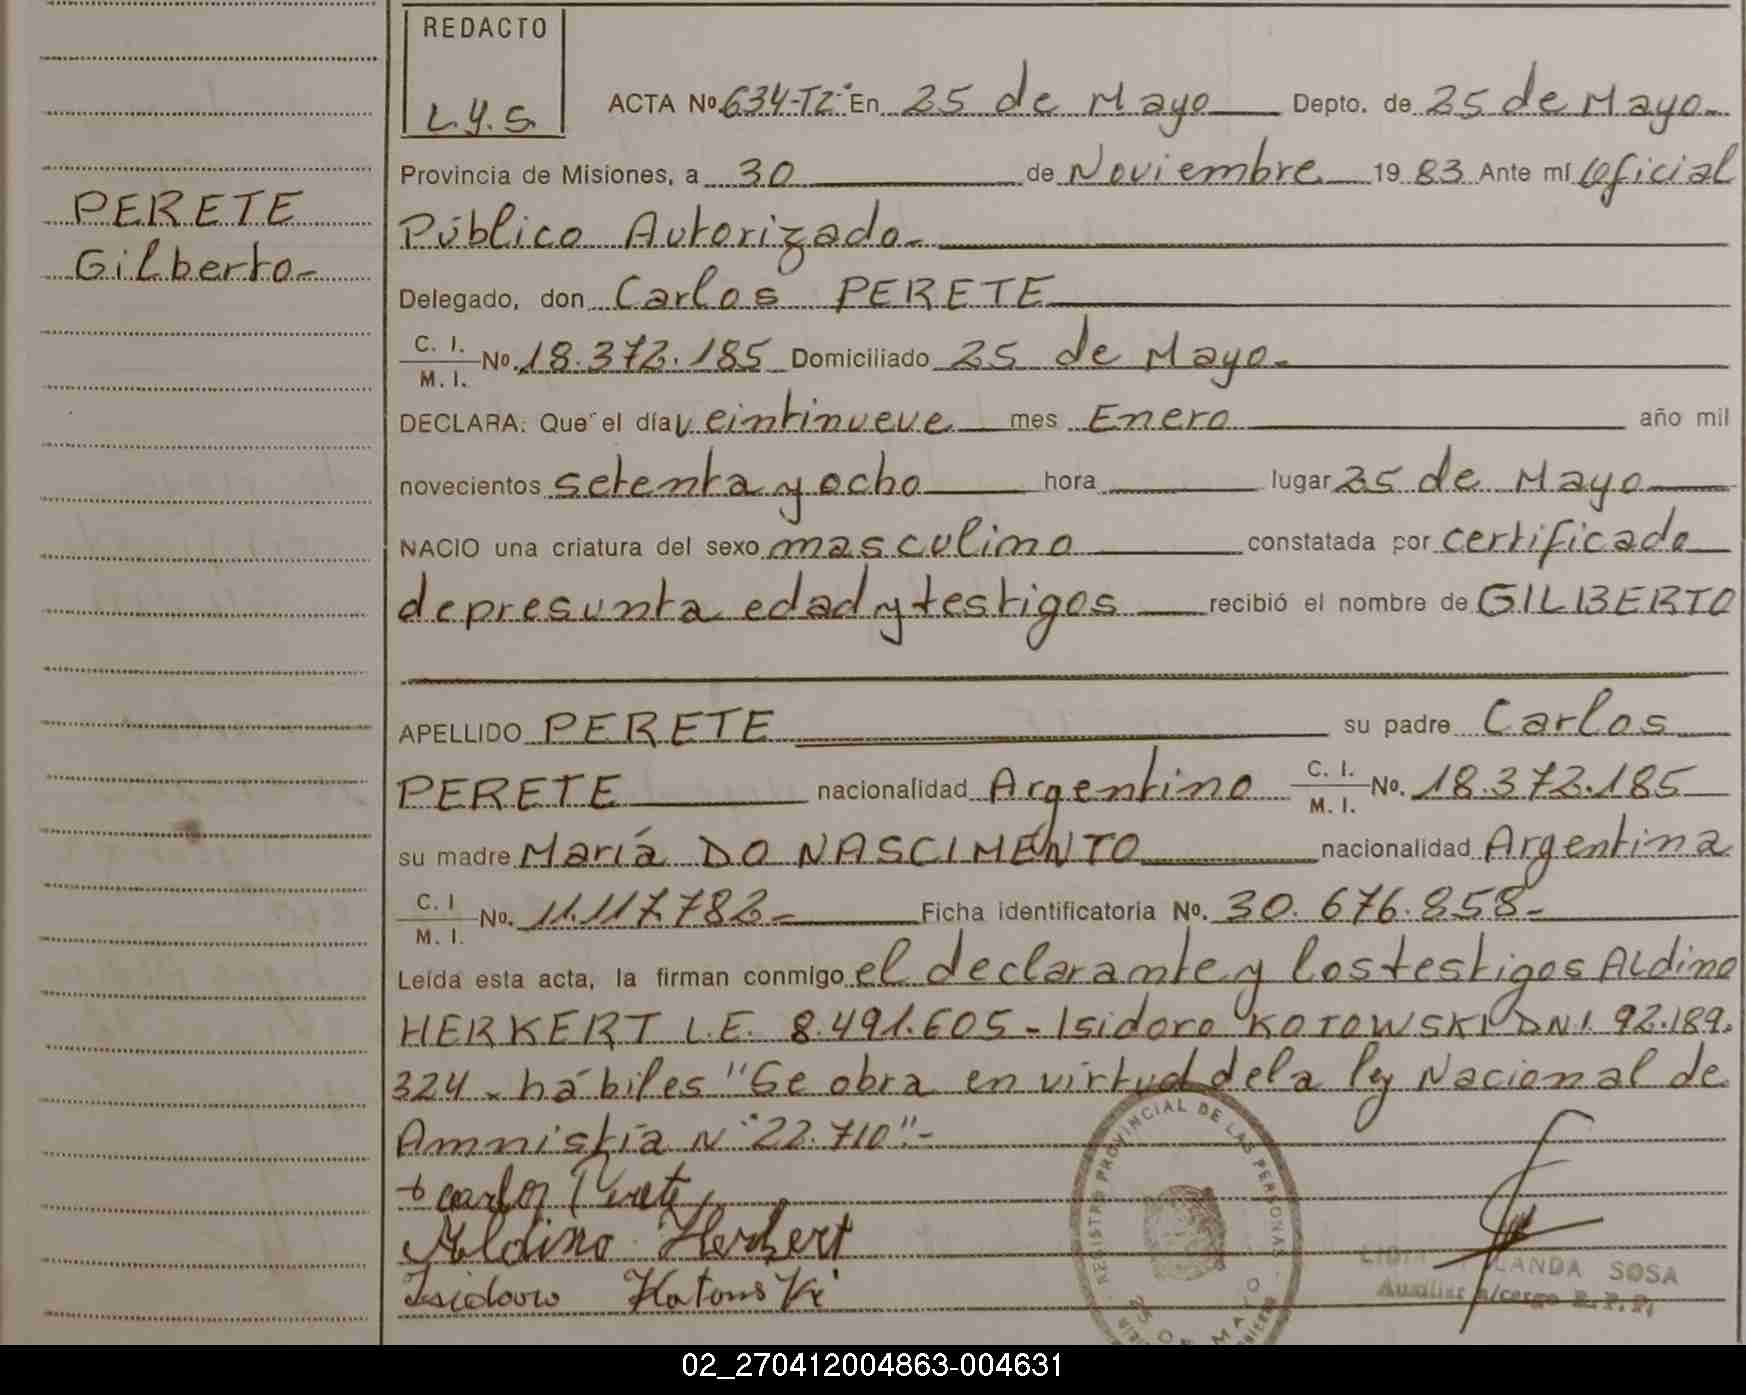 REDACTO
L.Y.S.
ACTA Nº 634-Tº2º En 25 de Mayo Depto. de 25 de Mayo
Provincia de Misiones, a 30 de Noviembre 1983 Ante mí Oficial
Público Autorizado.
PERETE
Gilberto
Delegado, don Carlos PERETE
C. I.
M. I. Nº. 18.372.185 Domiciliado 25 de Mayo.
DECLARA: Que el día veintinueve mes Enero año mil
novecientos setenta y ocho hora lugar 25 de Mayo
NACIO una criatura del sexo masculino constatada por certificado
de presunta edad y testigos recibió el nombre de GILBERTO
APELLIDO PERETE su padre Carlos
PERETE nacionalidad Argentino C. I. M. I. Nº. 18.372.185
su madre María DO NASCIMENTO nacionalidad Argentina
C. I M. I. Nº. 11.117.782.- Ficha identificatoria Nº. 30.676.858-
Leída esta acta, la firman conmigo el declarante y los testigos Aldino
HERKERT L.E. 8.491.605 - Isidoro KOTOWSKI DNI 92.189.
324 - hábiles "Se obra en virtud de la ley Nacional de
Amnistía Nº 22.710"-
Carlos Perete
Aldino Herkert
Isidoro Kotowski
REGISTRO PROVINCIAL DE LAS PERSONAS
25 DE MAYO
SOSA
Auxiliar a/cargo R.P.P.
02_270412004863-004631